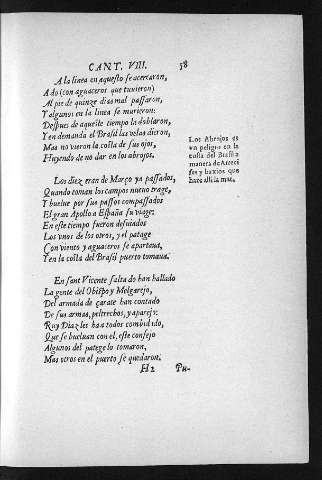 CANT. VIII. 58
A la linea en aquesto se acercaron,
A do (con aguaceros que tuuieron)
Al pie de quinze dias mal passaron,
Y algunos en la linea se murieron:
Despues de aqueste tiempo la doblaron,
Y en demanda el Brasil las velas dieron,
Mas no vieron la costa de sus ojos,
Huyendo de no dar en los abrojos.
Los Abrojos es
vn peligro en la
costa del Brasil a
manera de Arreci
fes y baxios que
haze alli la mar.
Los diez eran de Março ya passados,
Quando toman los campos nueuo trage,
Y buelue por sus passos compassados
El gran Apollo a España su viage:
En este tiempo fueron desuiados
Los vnos de los otros, y el patage
Con viento y aguaceros se apartaua,
Y en la costa del Brasil puerto tomaua.
En sant Vicente salta do han hallado
La gente del Obispo y Melgarejo,
Del armada de çarate han contado
De sus armas, peltrechos, y aparejo:
Ruy Diaz les ha a todos combidado,
Que se bueluan con el, este consejo
Algunos del patage lo tomaron,
Mas otros en el puerto se quedaron.
H2 Pu-